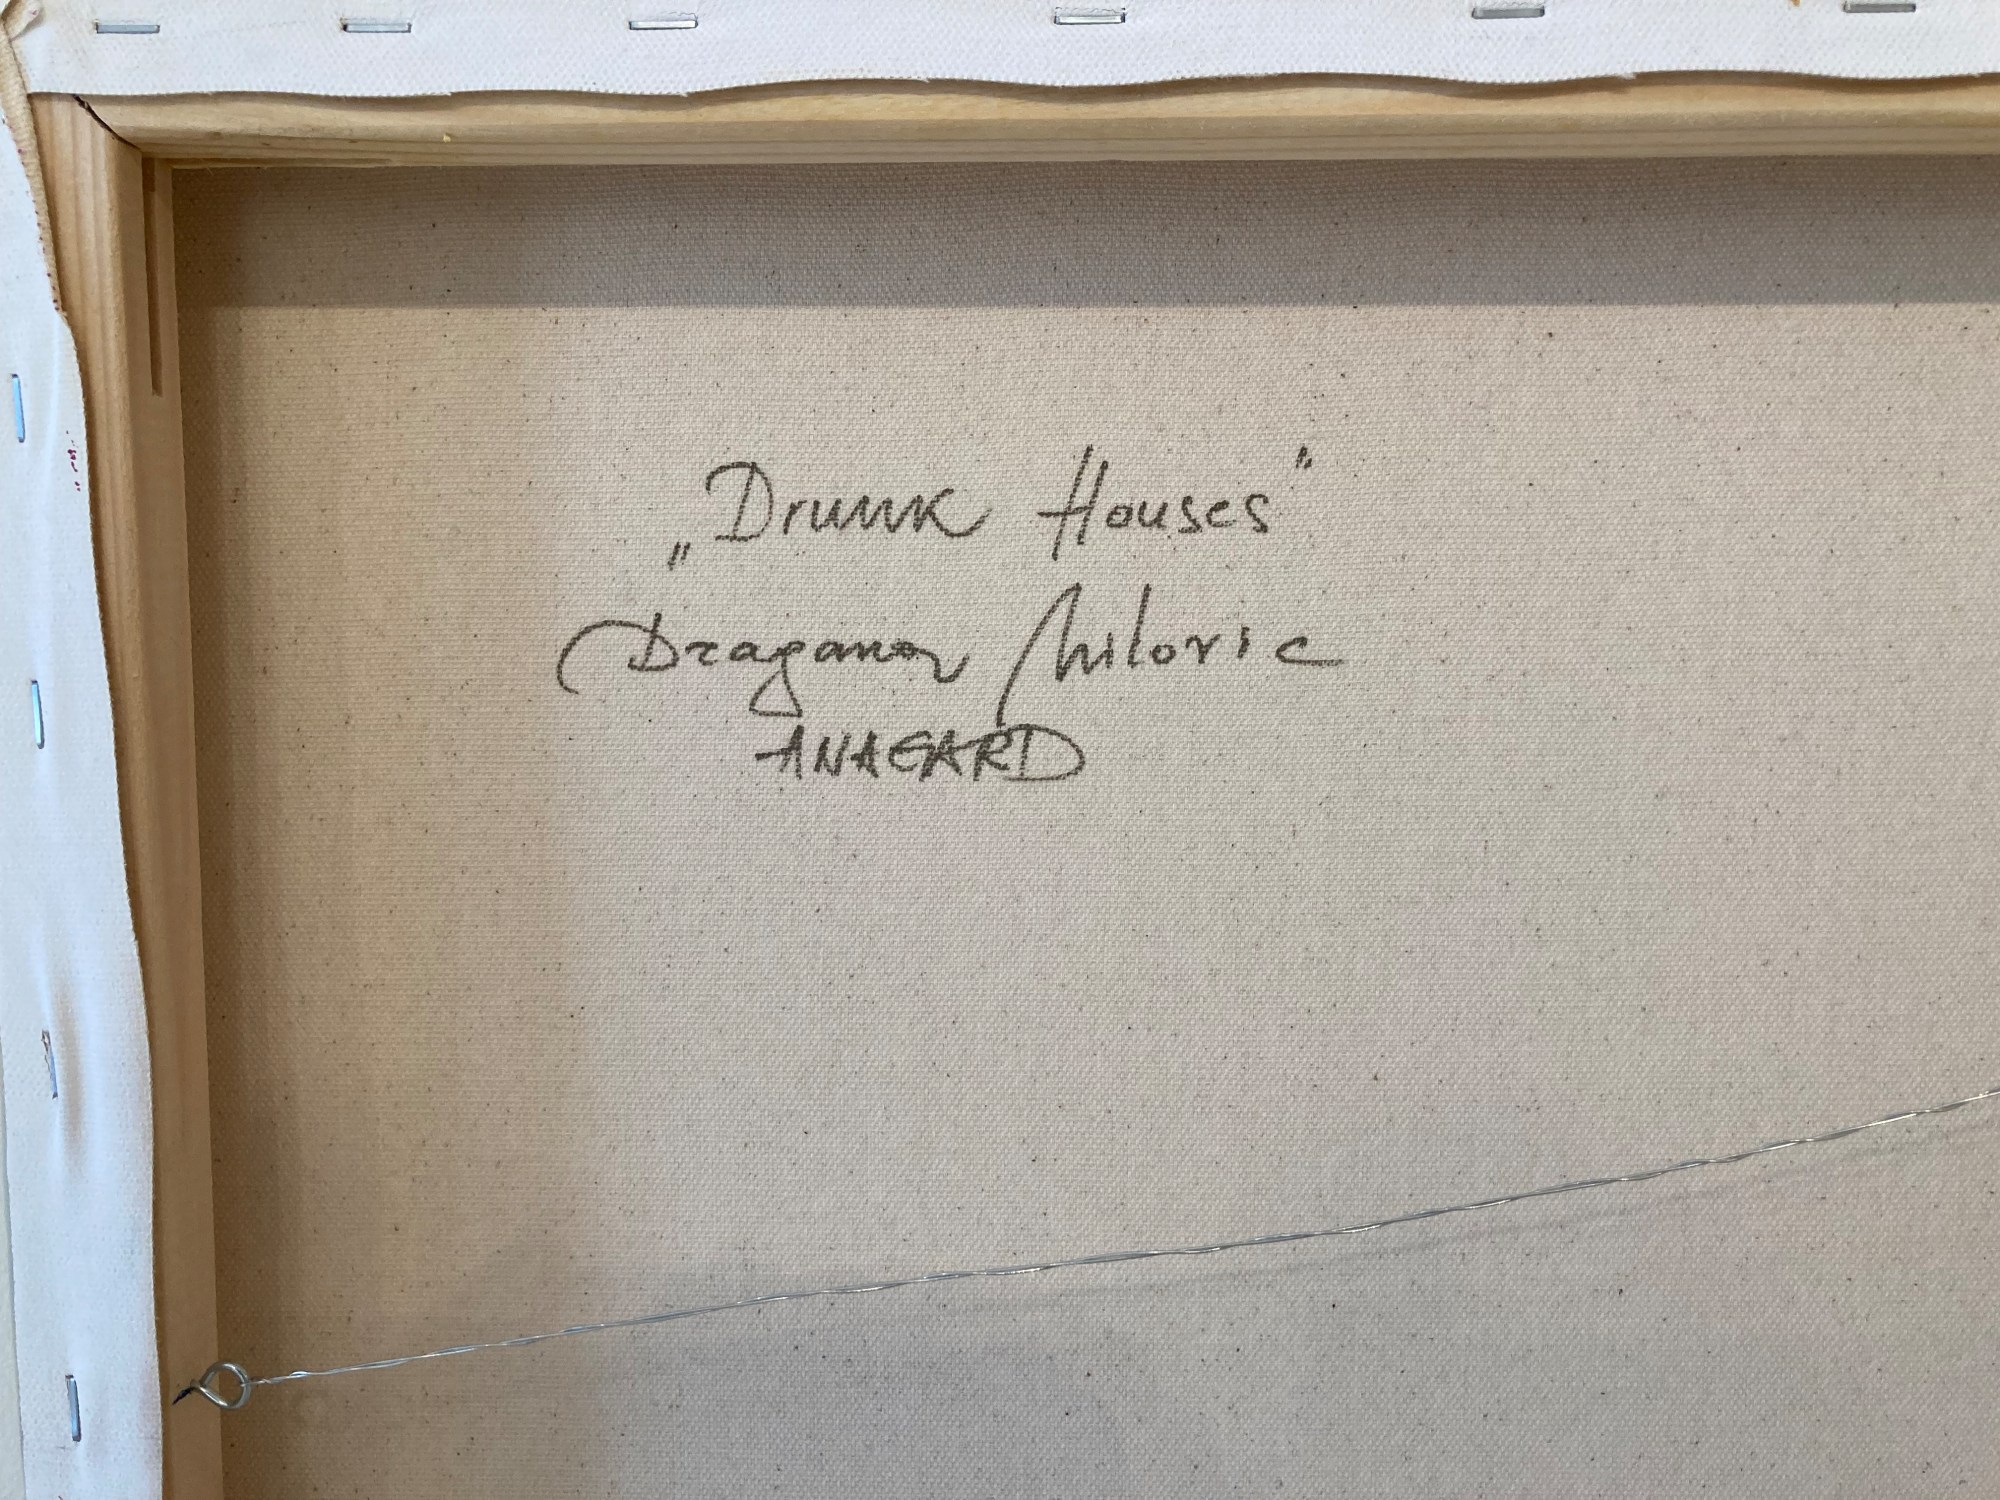 „Drunk Houses"
Dragana Milovic
ANAGARD